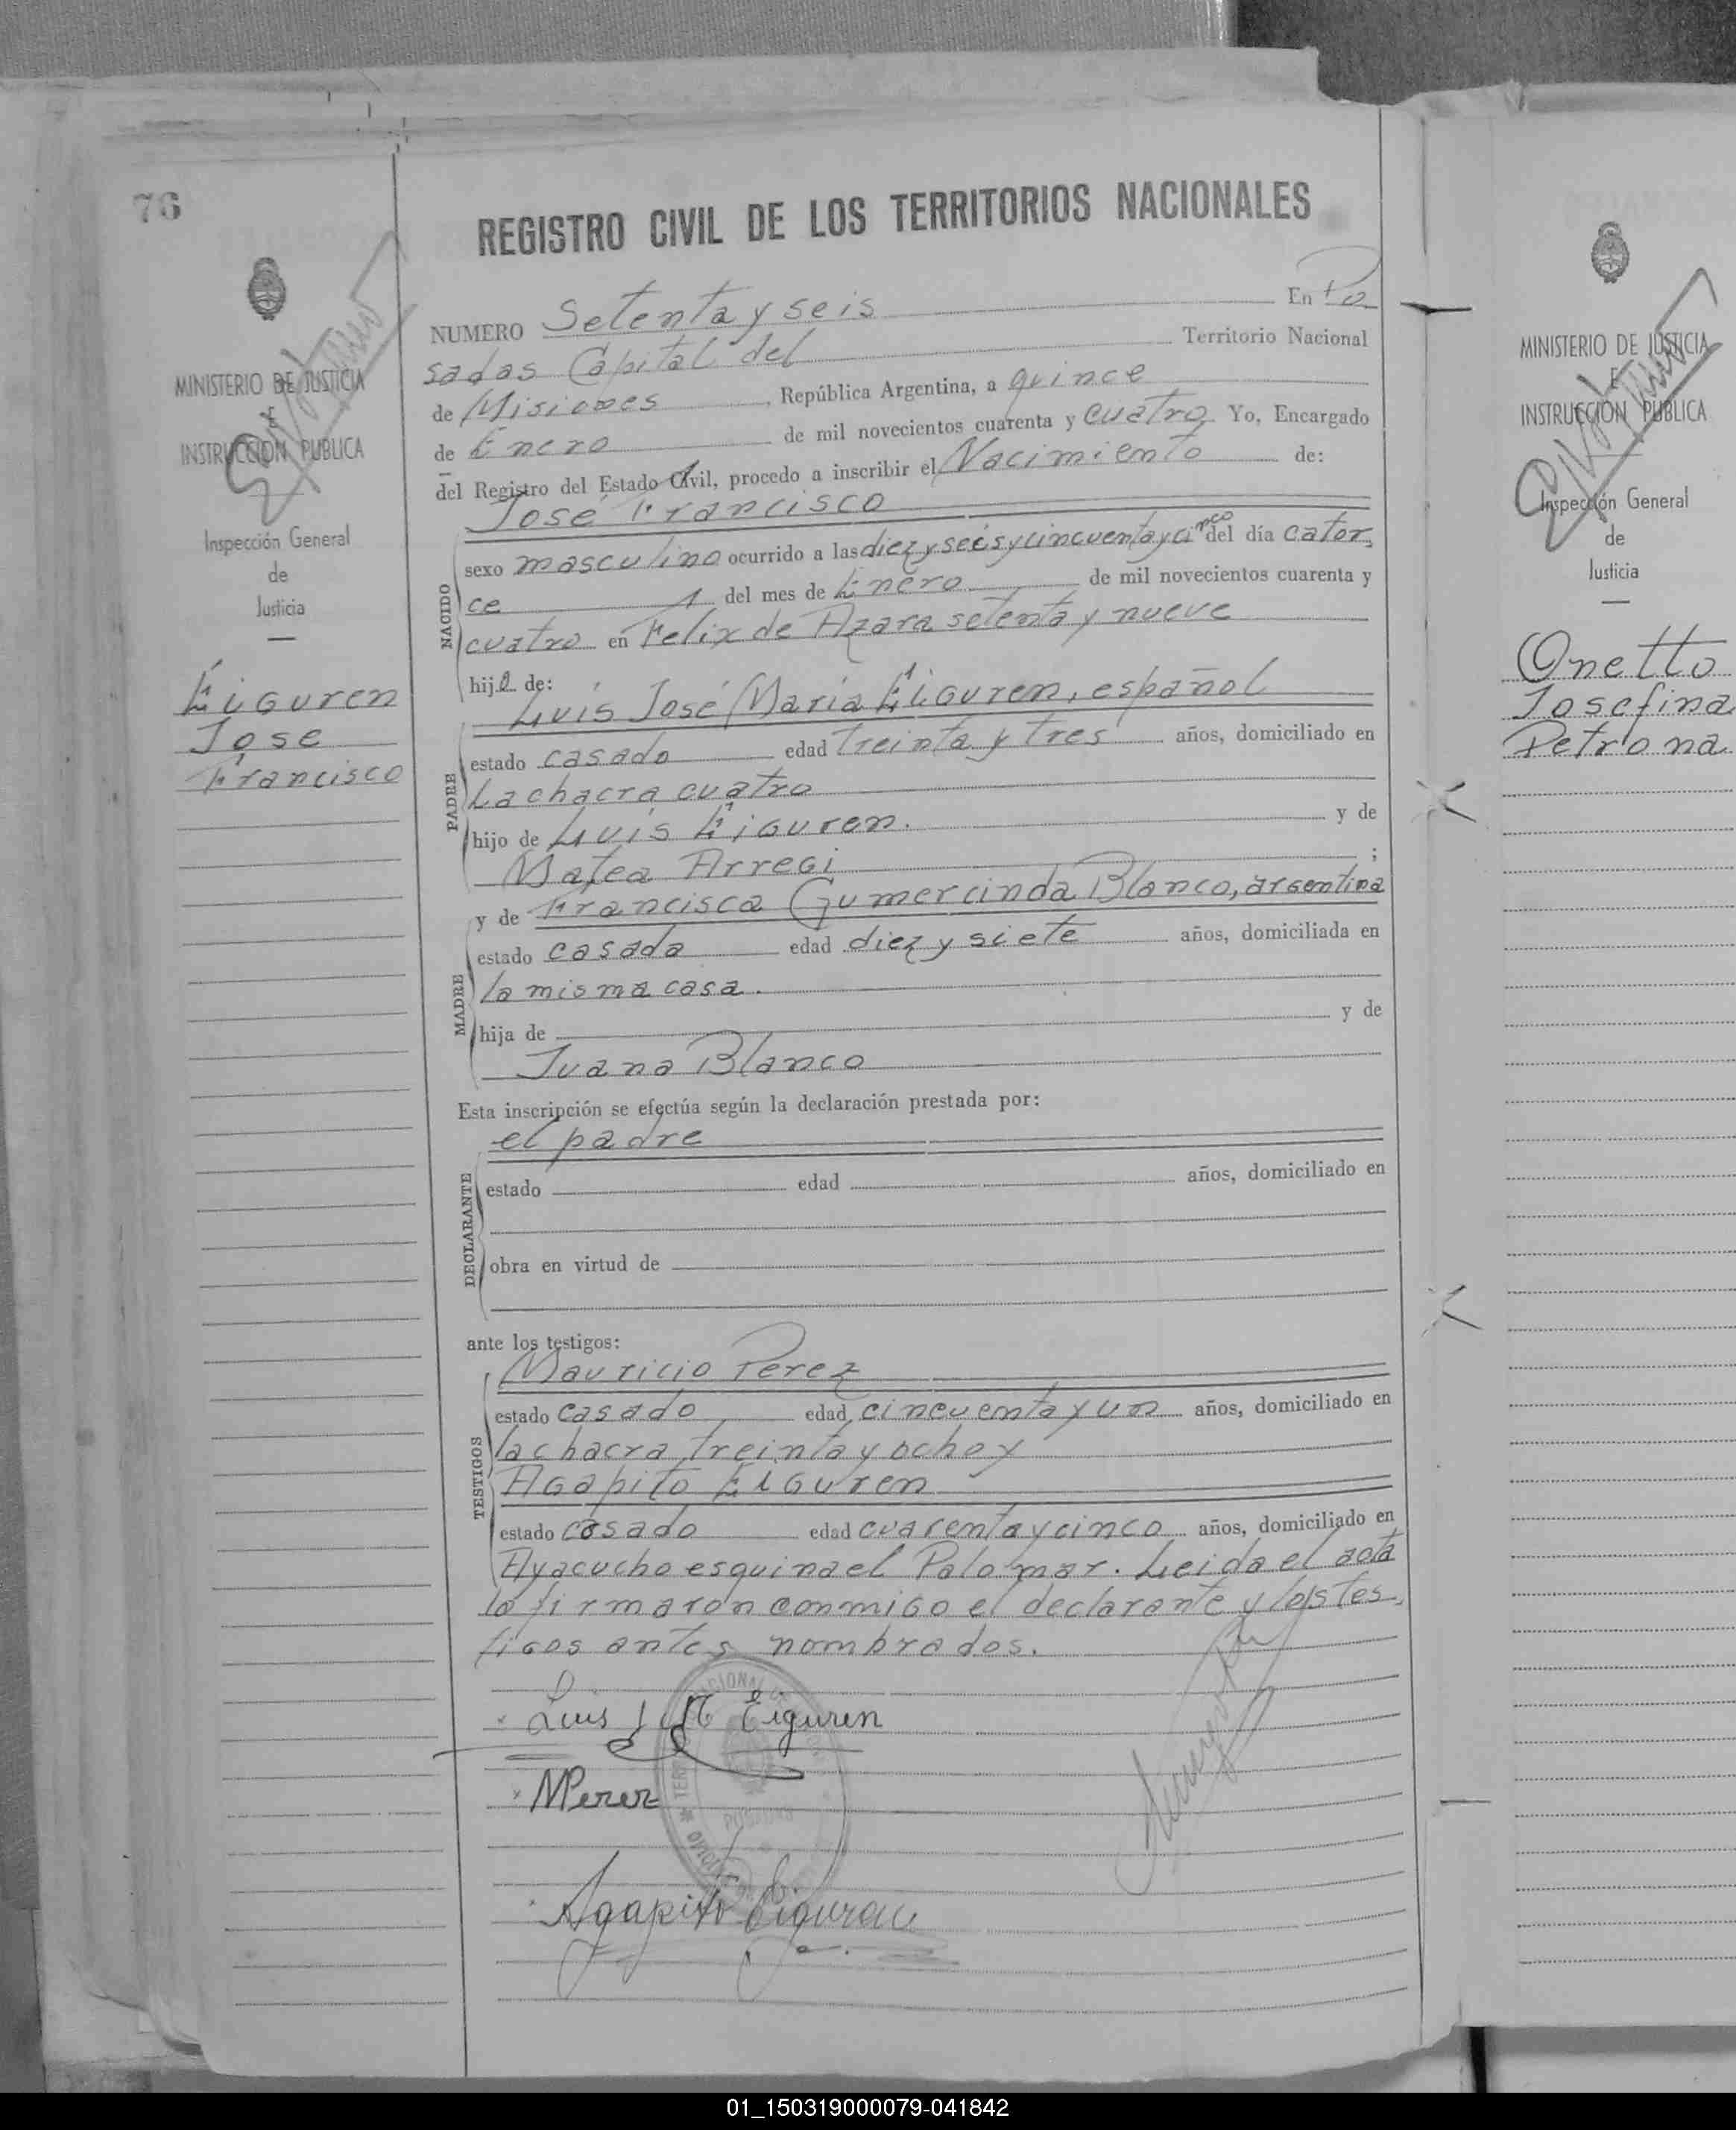 76
REGISTRO CIVIL DE LOS TERRITORIOS NACIONALES
NUMERO Setenta y seis En Po
sadas Capital del Territorio Nacional
de Misiones, República Argentina, a quince
de Enero de mil novecientos cuarenta y cuatro Yo, Encargado
del Registro del Estado Civil, procedo a inscribir el Nacimiento de:
José Francisco
NACIDO
sexo masculino ocurrido a las diez y seis y cincuenta y cinco del día cator,
ce del mes de Enero de mil novecientos cuarenta y
cuatro en Felix de Azara setenta y nueve
hijo de:
Luis José María Eiguren, español
PADRE
estado casado edad treinta y tres años, domiciliado en
La chacra cuatro
hijo de Luis Eiguren. y de
Matea Arregi ;
y de Francisca Gumercinda Blanco, argentina
MADRE
estado casada edad diez y siete años, domiciliada en
la misma casa.
hija de y de
Juana Blanco
Esta inscripción se efectúa según la declaración prestada por:
el padre
DECLARANTE
estado edad años, domiciliado en
obra en virtud de
ante los testigos:
Mauricio Perez
TESTIGOS
estado casado edad cincuenta y un años, domiciliado en
la chacra treinta y ocho y
Agapito Eiguren
estado casado edad cuarenta y cinco años, domiciliado en
Ayacucho esquina el Palomar. Leida el acta
la firmaron conmigo el declarante y los tes,
tigos antes nombrados.
Luis J M Eiguren
MPerez
Agapito Eiguren
MINISTERIO DE JUSTICIA
E
INSTRUCCION PUBLICA
Inspección General
de
Justicia
Eiguren
Jose
Francisco
MINISTERIO DE JUSTICIA
E
INSTRUCCION PUBLICA
Inspección General
de
Justicia
Onetto
Josefina
Petrona
01_150319000079-041842